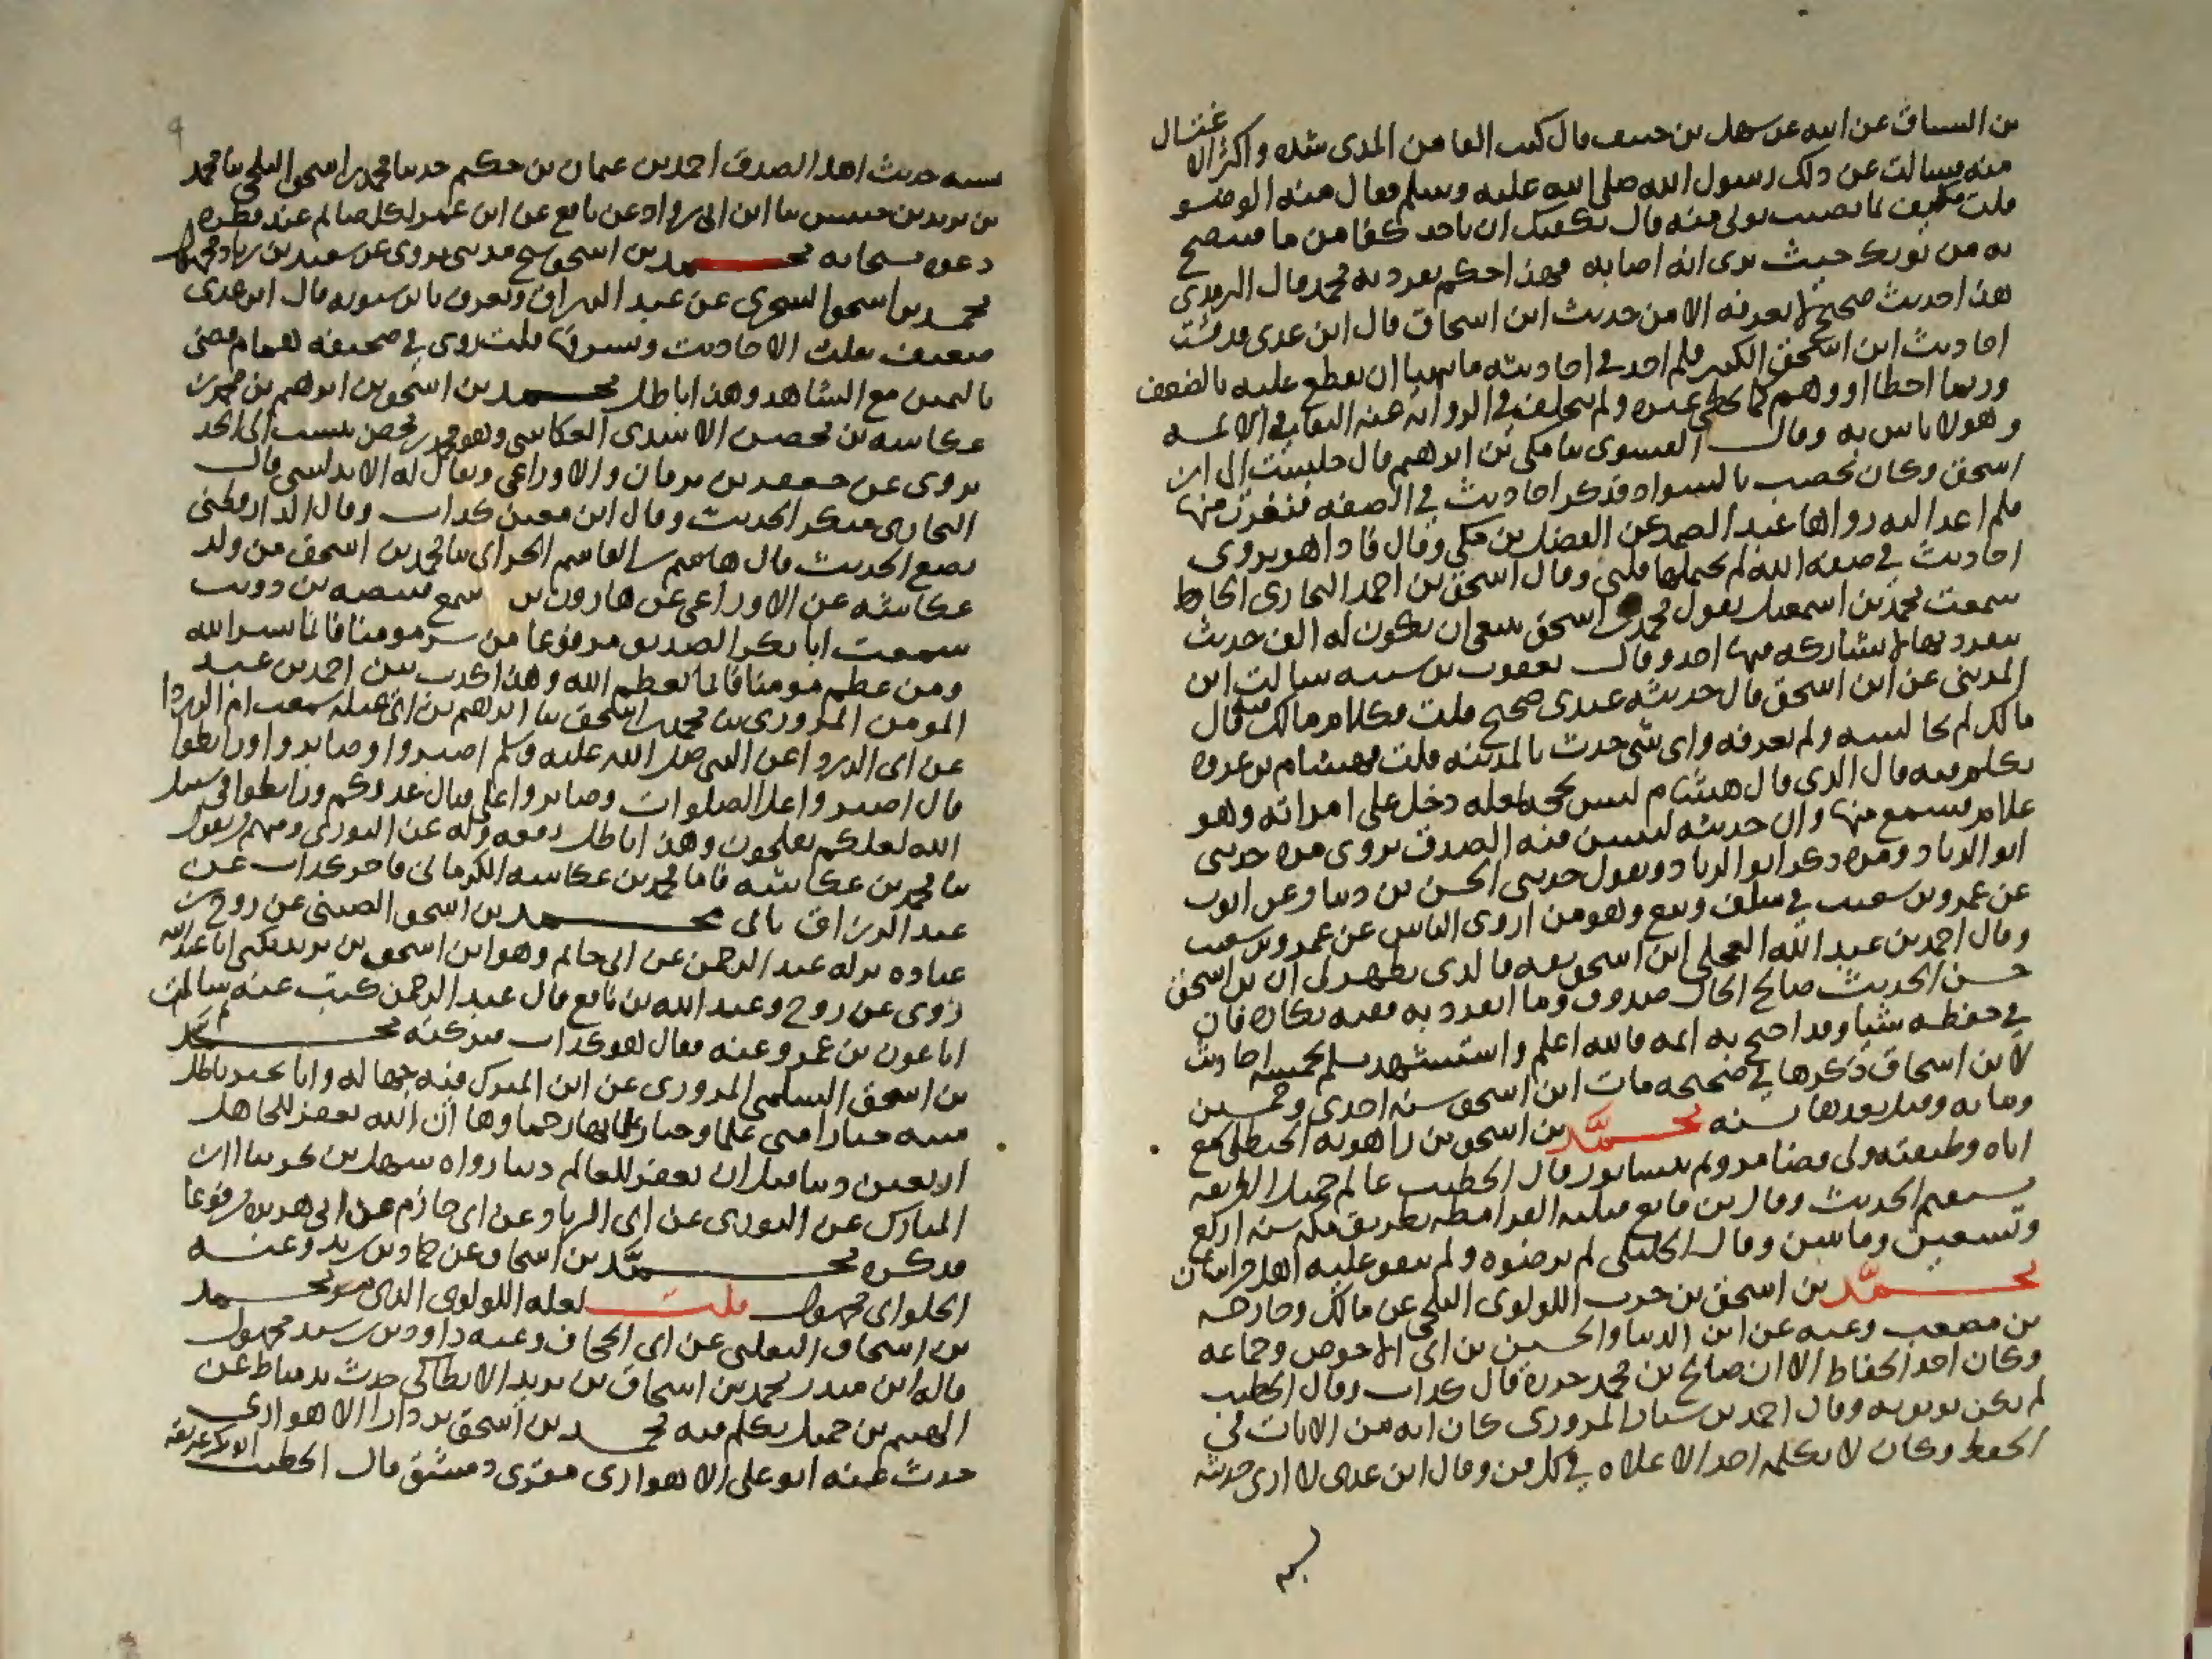 بن السباق عن ابيه عن سهل بن حنيف قال كنت القا من المذي شده واكثر الاغتسال
منه فسالت عن ذلك رسول الله صلى الله عليه وسلم فقال منه الوضو
قلت فكيف بما يصيب ثوبي منه قال يكفيك ان تاخذ كفا من ما فتنضح
به من ثوبك حيث ترى انه اصابه فهذا حكم تفرد به محمد قال الترمذي
هذا حديث صحيح لا نعرفه الا من حديث ابن اسحاق قال ابن عدي قد فتشت
احاديث ابن اسحق الكبير فلم اجد في احاديثه ما يتهيا ان يقطع عليه بالضعف
وربما اخطا او وهم كما يخطي غيره ولم يتخلف في الرواية عنه الثقات والائمه
وهو لا باس به وقال الفسوي ثنا مكي بن ابرهيم قال جلست الى ابن
اسحق وكان يخضب بالسواد فذكر احاديث في الصفه فنفرت منها
فلم اعد اليه رواها عبد الصمد عن الفضل بن مكي وقال فاذا هو يروي
احاديث في صفه الله لم يحتملها قلبي وقال اسحق بن احمد البخاري الحافظ
سمعت محمد بن اسمعيل يقول محمد بن اسحق ينبغي ان يكون له الف حديث
ينفرد بها لا يشاركه فيها احد وقال يعقوب بن شيبه سالت ابن
المديني عن ابن اسحق قال حديثه عندي صحيح قلت فكلام مالك فيه قال
مالك لم يجالسه ولم يعرفه واي شي حدث بالمدينه قلت فهشام بن عروه
تكلم فيه قال الذي قال هشام ليس بحجه لعله دخل على امراته وهو
غلام فسمع منها وان حديثه ليتبين فيه الصدق يروي مره حدثني
ابو الزناد ومره ذكر ابو الزناد ويقول حدثني الحسن بن دينار عن ايوب
عن عمرو بن شعيب في سلف وبيع وهو من اروى الناس عن عمرو بن شعيب
وقال احمد بن عبد الله العجلي ابن اسحق ثقه فالذي يظهر لي ان بن اسحق
حسن الحديث صالح الحال صدوق وما انفرد به ففيه نكاره فان
في حفظه شيا وقد احتج به ايمه فالله اعلم واستشهد مسلم بخمسه احاديث
لابن اسحاق ذكرها في صحيحه مات ابن اسحق سنه احدى وخمسين
ومايه وقيل بعدها بسنه محمد بن اسحق بن راهويه الحنظلي سمع
اباه وطبقته ولي قضا مرو ثم نيسابور قال الخطيب عالم جميل الطريقه
مستقيم الحديث وقال بن قانع قتلته القرامطه بطريق مكه سنه اربع
وتسعين ومايتين وقال الخليلي لم يرضوه ولم يتفق عليه اهل خراسان
محمد بن اسحق بن حرب اللولوي البلخي عن مالك وخارجه
بن مصعب وعنه عن ابن ابي الدنيا والحسين بن ابي الاحوص وجماعه
وكان احد الحفاظ الا ان صالح بن محمد جزرة قال كذاب وقال الخطيب
لم يكن يوثق به وقال احمد بن سيار المروزي كان ايه من الايات في
الحفظ وكان لا يكلمه احد الا علاه في كل فن وقال ابن عدي لا ارى حديثه
يشبه حديث اهل الصدق احمد بن عثمان بن حكيم حدثنا محمد بن اسحق البلخي ثنا محمد
بن يزيد بن خنيس ثنا ابن ابي رواد عن نافع عن ابن عمر لكل صائم عند فطره
دعوه مستجابه محمد بن اسحق شيخ مدني يروي عن سعيد بن زياد مجهول
محمد بن اسحق السجزي عن عبد الرزاق ويعرف بابن سبويه قال ابن عدي
ضعيف يقلب الاحاديث ويسرقها قلت روى في صحيفه همام قضى
باليمين مع الشاهد وهذا باطل محمد بن اسحق بن ابرهيم بن محمد بن
عكاشه بن محصن الاسدي العكاشي وهو محمد بن محصن ينسب الى الجد
يروي عن جعفر بن برقان والاوزاعي ويقال له الاندلسي قال
البخاري منكر الحديث وقال ابن معين كذاب وقال الدارقطني
يضع الحديث قال هاشم بن القاسم الحراني ثنا محمد بن اسحق من ولد
عكاشه عن الاوزاعي عن هارون بن سمع قبيصه بن ذويب
سمعت ابا بكر الصديق مرفوعا من سر مومنا فانما يسر الله
ومن عظم مومنا فانما يعظم الله وهذا كذب بين احمد بن عبد
المومن المروزي ثنا محمد بن اسحق ثنا ابراهيم بن ابي عبله سمعت ام الدردا
عن ابي الدردا عن النبي صلى الله عليه وسلم اصبروا وصابروا ورابطوا
قال اصبروا على الصلوات وصابروا على قتال عدوكم ورابطوا في سبيل
الله لعلكم تفلحون وهذا باطل رفعه وله عن الثوري ومنهم من يقول
ثنا محمد بن عكاشه فاما محمد بن عكاشه الكرماني فاخر كذاب عن
عبد الرزاق ياتي محمد بن اسحق الصيني عن روح بن
عباده تركه عبد الرحمن عن ابي حاتم وهو ابن اسحق بن يزيد يكنى ابا عبد الله
روى عن روح وعبد الله بن نافع قال عبد الرحمن كتبت عنه سالت
ابا عون بن عمرو عنه فقال هو كذاب فتركته محمد
بن اسحق السلمي المروزي عن ابن المبارك فيه جهاله واتى بخبر باطل
متنه خيار امتي علماوها وخيار علمائها رحماوها ان الله يغفر للجاهل
اربعين ذنبا قبل ان يغفر للعالم ذنبا رواه سهل بن بحر ثنا ابن
المبارك عن الثوري عن ابي الزناد عن ابي حازم عن ابي هريره مرفوعا
فذكره محمد بن اسحاق عن حماد بن زيد وعنه
الحلواني مجهول قلت لعله اللولوي الذي مر محمد
بن اسحاق الثعلبي عن ابي الجحاف وعنه داود بن رشيد مجهول
قاله ابن منده محمد بن اسحاق بن يزيد الانطاكي حدث بدمياط عن
الهيثم بن جميل تكلم فيه محمد بن اسحق بن دارا الاهوازي
حدث عنه ابو علي الاهوازي مقري دمشق قال الخطيب